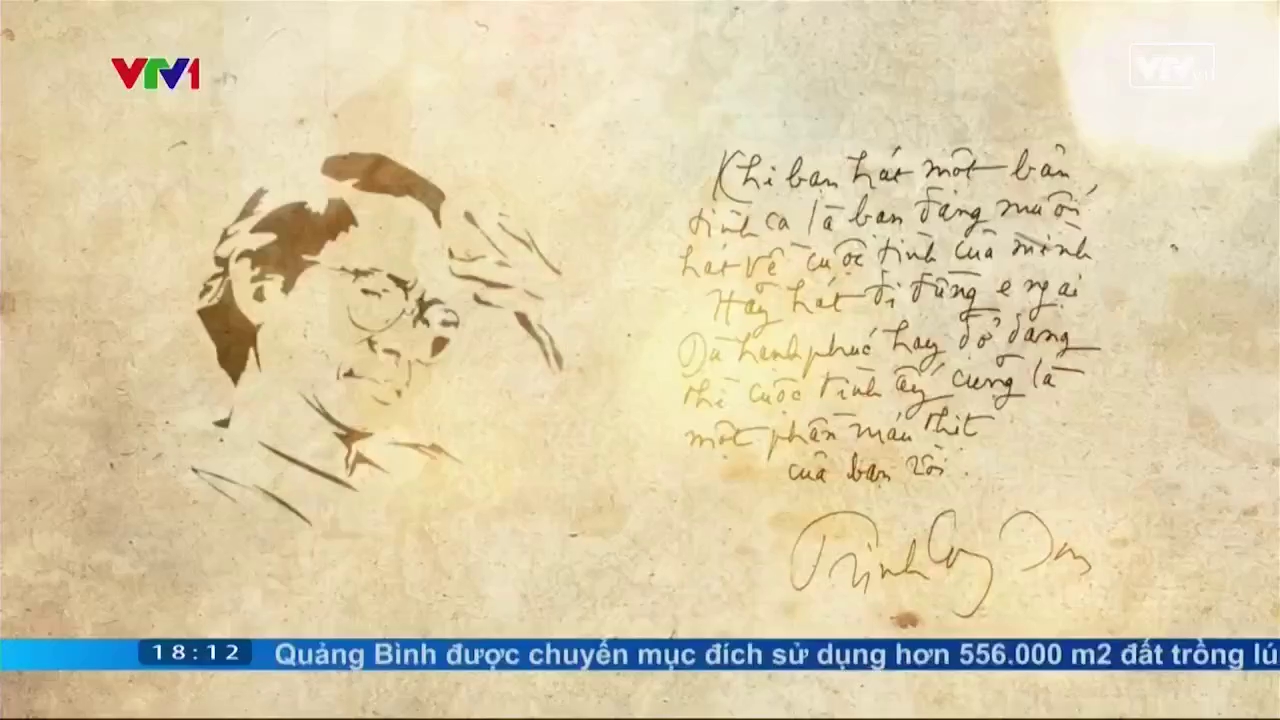 VTV1
VTV.vn
Khi bạn hát một bản
tình ca là bạn đang muốn
hát về cuộc tình của mình
Hãy hát đi đừng e ngại
Dù hạnh phúc hay dở dang
thì cuộc tình ấy cũng là
một phần máu thịt
của bạn rồi.
Trịnh Công Sơn
18:12 Quảng Bình được chuyển mục đích sử dụng hơn 556.000 m2 đất trồng lú